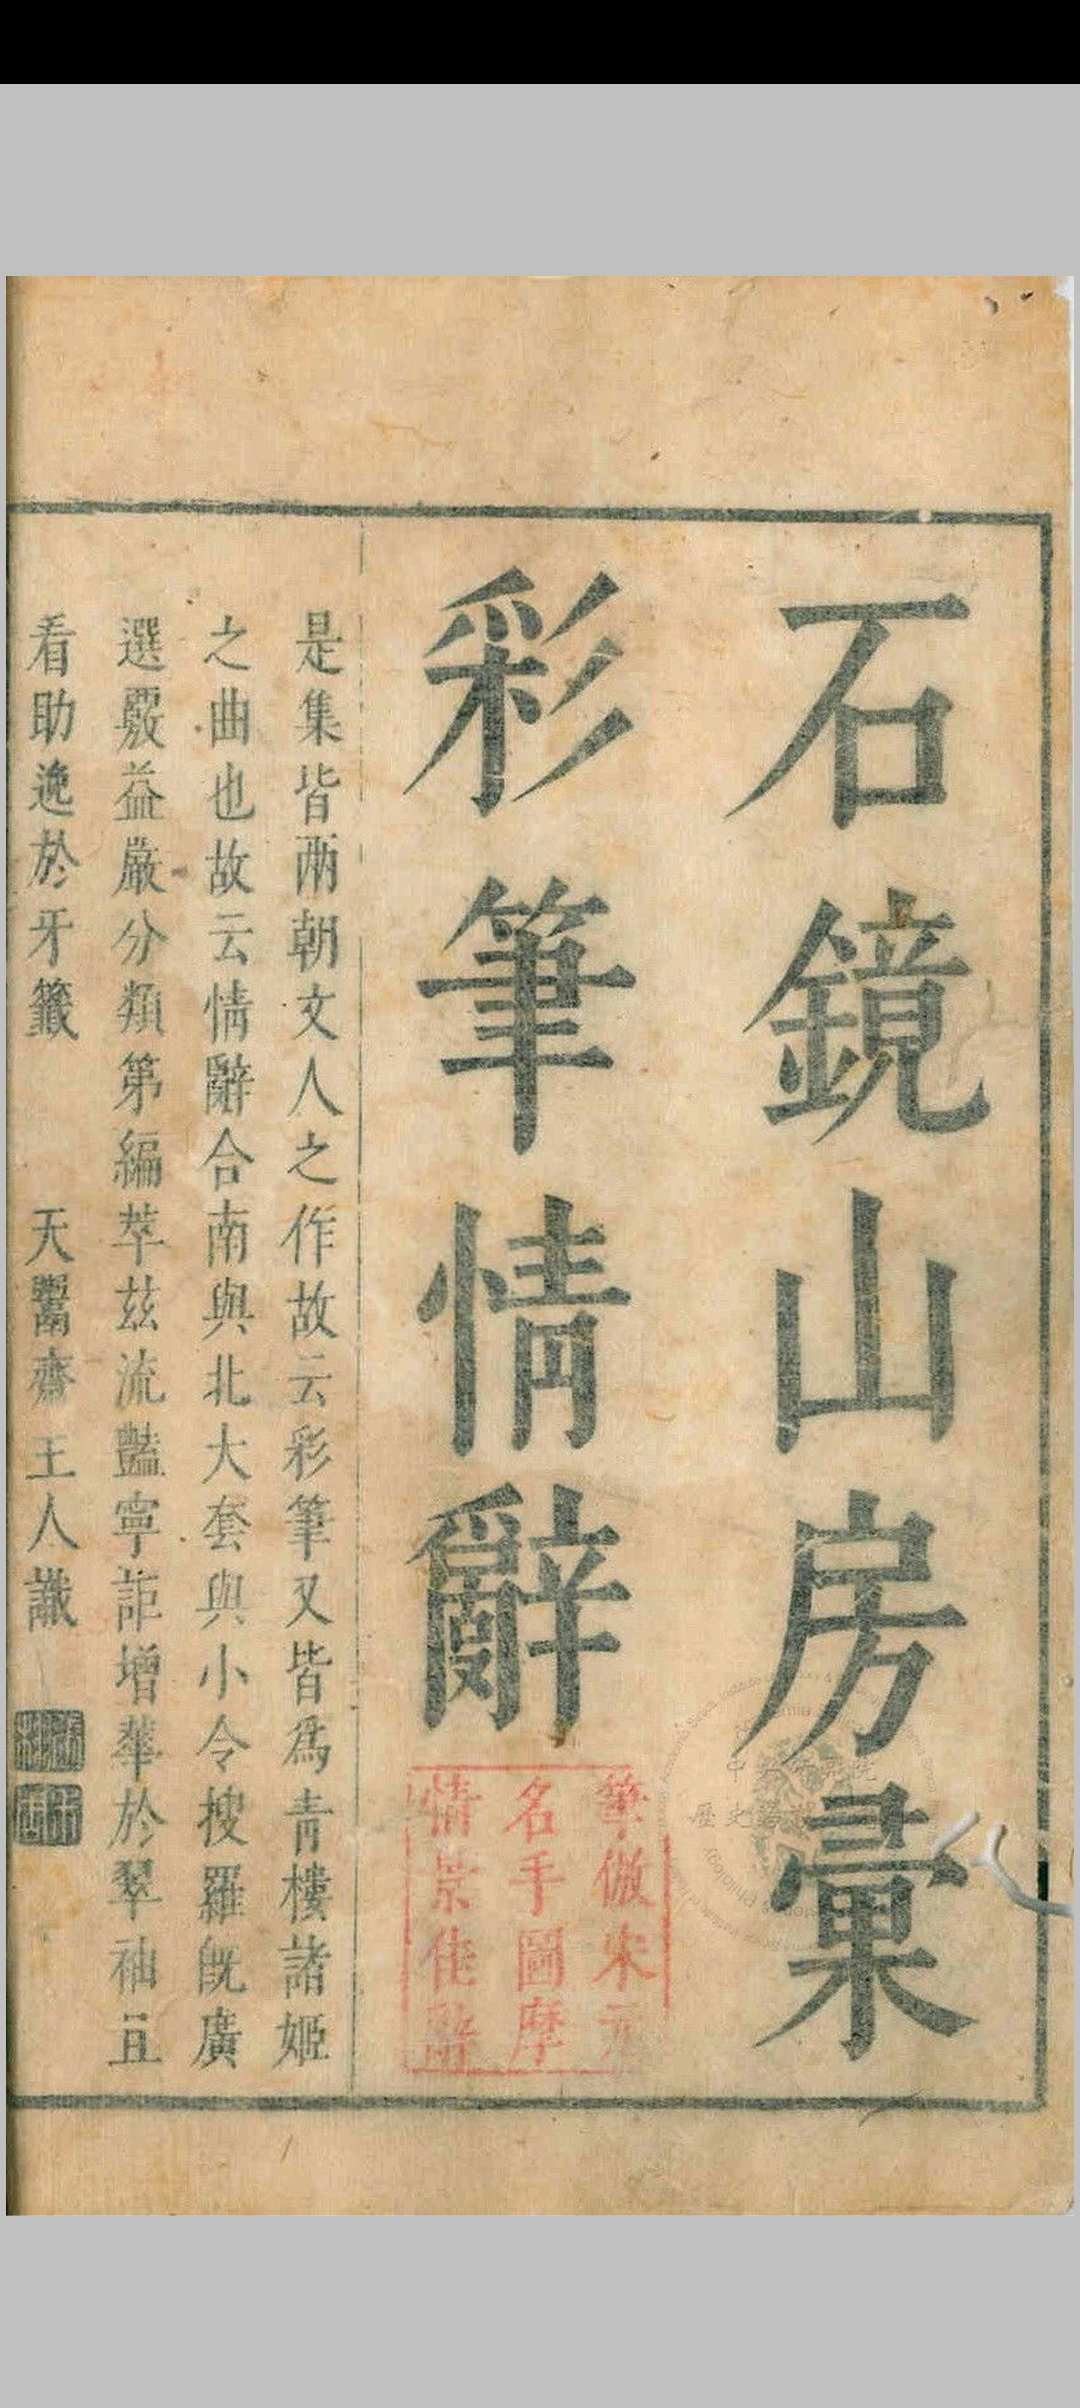 石鏡山房彙
彩筆情辭
筆倣宋元
名手圖摩
情景佳辭
是集皆兩朝文人之作故云彩筆又皆爲青樓諸姬
之曲也故云情辭合南與北大套與小令搜羅旣廣
選覈益嚴分類第編萃茲流豔寧詎增華於翠袖且
看助逸於牙籤　天鬻齋主人識